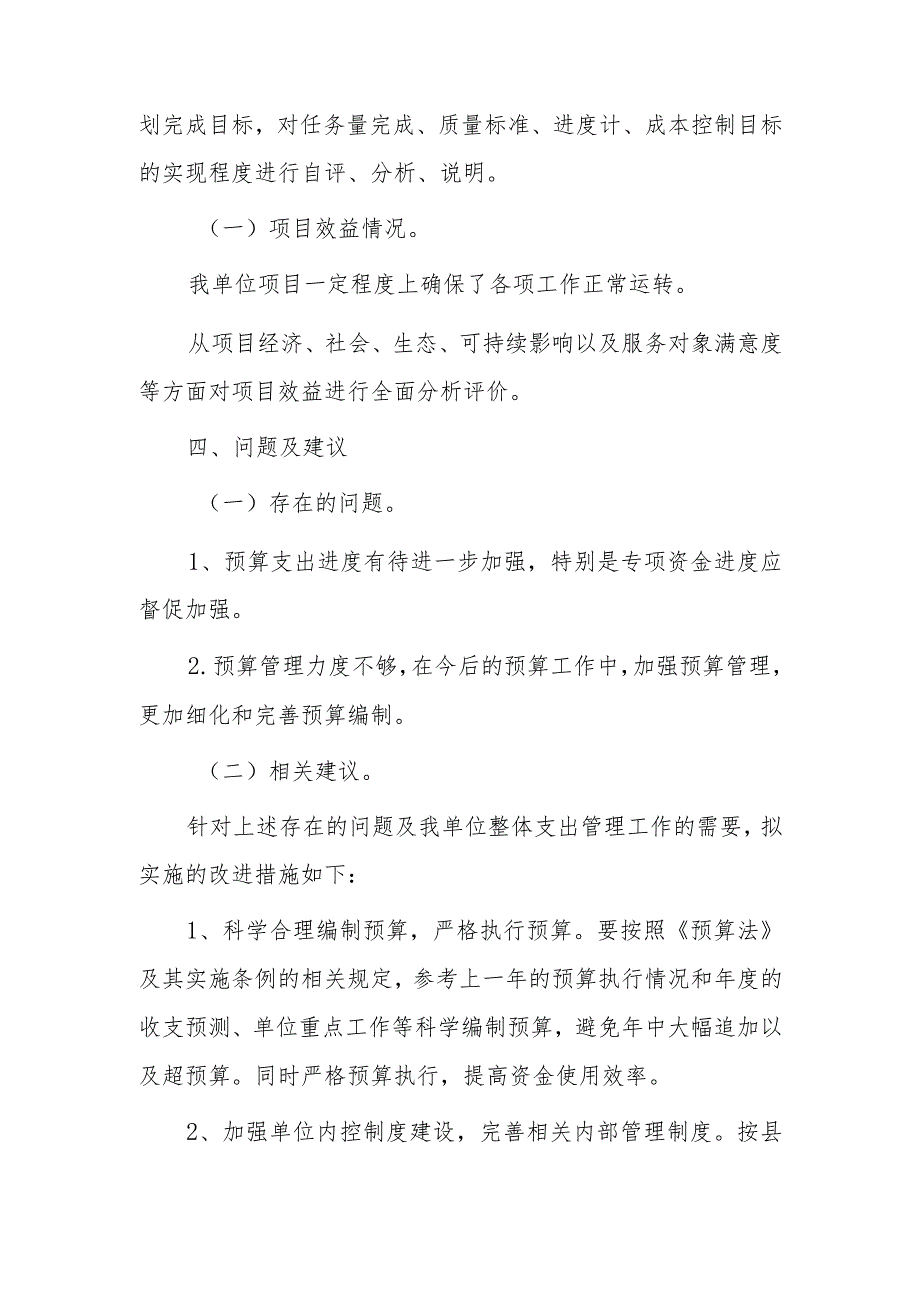 划完成目标，对任务量完成、质量标准、进度计、成本控制目标
的实现程度进行自评、分析、说明。
（一）项目效益情况。
我单位项目一定程度上确保了各项工作正常运转。
从项目经济、社会、生态、可持续影响以及服务对象满意度
等方面对项目效益进行全面分析评价。
四、问题及建议
（一）存在的问题。
1、预算支出进度有待进一步加强，特别是专项资金进度应
督促加强。
2.预算管理力度不够，在今后的预算工作中，加强预算管理，
更加细化和完善预算编制。
（二）相关建议。
针对上述存在的问题及我单位整体支出管理工作的需要，拟
实施的改进措施如下：
1、科学合理编制预算，严格执行预算。要按照《预算法》
及其实施条例的相关规定，参考上一年的预算执行情况和年度的
收支预测、单位重点工作等科学编制预算，避免年中大幅追加以
及超预算。同时严格预算执行，提高资金使用效率。
2、加强单位内控制度建设，完善相关内部管理制度。按县